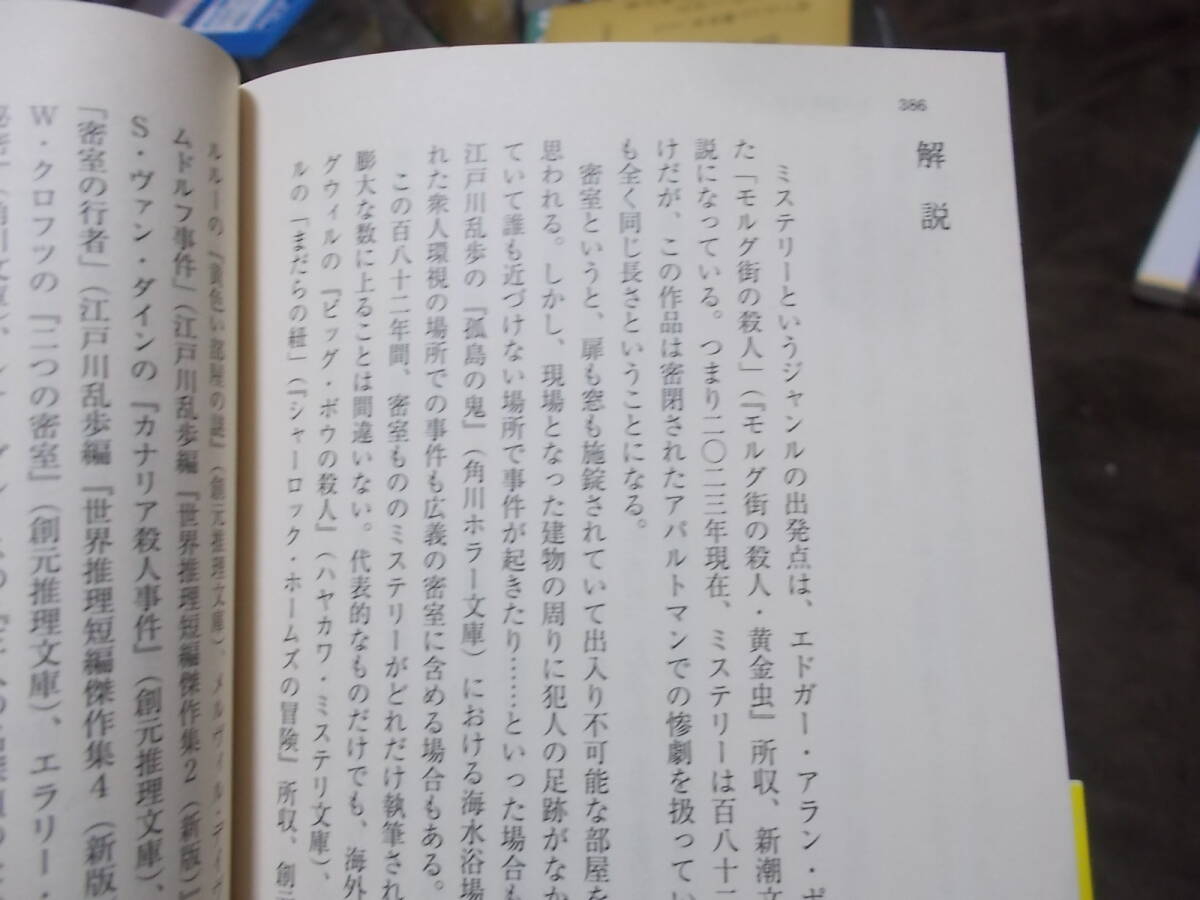 386
解説
ミステリーというジャンルの出発点は、エドガー・アラン・ポ
た「モルグ街の殺人」(『モルグ街の殺人・黄金虫』所収、新潮文
説になっている。つまり二〇二三年現在、ミステリーは百八十二
けだが、この作品は密閉されたアパルトマンでの惨劇を扱ってい
も全く同じ長さということになる。
密室というと、扉も窓も施錠されていて出入り不可能な部屋を
思われる。しかし、現場となった建物の周りに犯人の足跡がなか
ていて誰も近づけない場所で事件が起きたり……といった場合も
江戸川乱歩の『孤島の鬼』(角川ホラー文庫)における海水浴場
れた衆人環視の場所での事件も広義の密室に含める場合もある。
この百八十二年間、密室もののミステリーがどれだけ執筆され
膨大な数に上ることは間違いない。代表的なものだけでも、海外
グウィルの『ビッグ・ボウの殺人』(ハヤカワ・ミステリ文庫)、
ルの「まだらの紐」(『シャーロック・ホームズの冒険』所収、創元
ルルーの『黄色い部屋の謎』(創元推理文庫)、メルヴィル・デイヴ
ムドルフ事件」(江戸川乱歩編『世界推理短編傑作集2(新版)』
S・ヴァン・ダインの『カナリア殺人事件』(創元推理文庫)、
「密室の行者」(江戸川乱歩編『世界推理短編傑作集4(新版
W・クロフツの『二つの密室』(創元推理文庫)、エラリー・